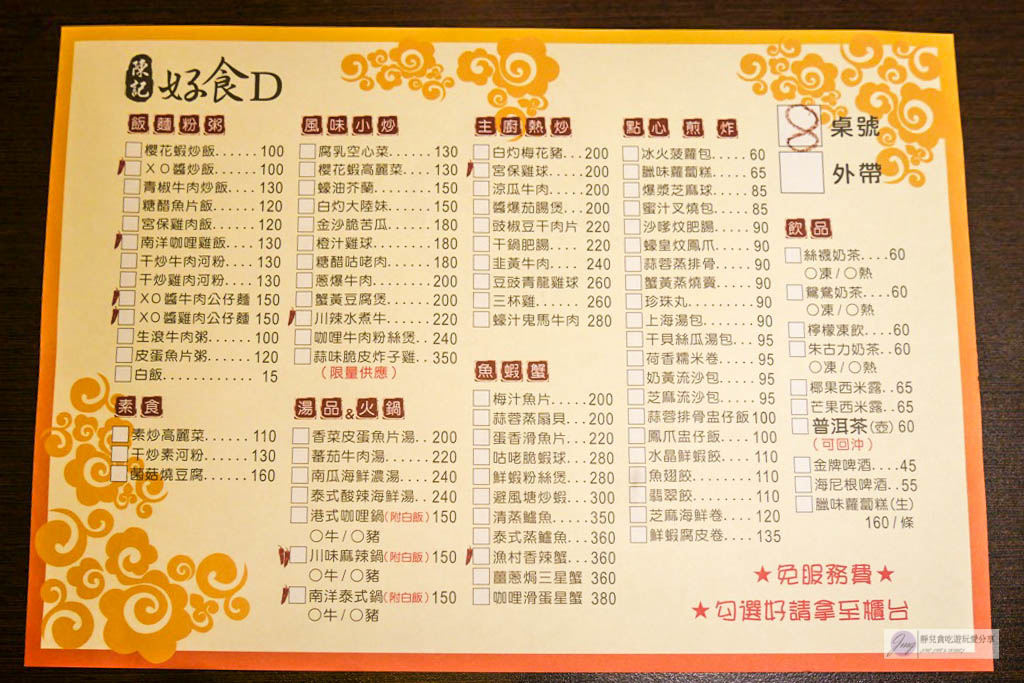 陳記 好食D
飯麵粉粥
櫻花蝦炒飯......100
XO醬炒飯......100
青椒牛肉炒飯....130
糖醋魚片飯......120
宮保雞肉飯......120
南洋咖哩雞飯....130
干炒牛肉河粉....130
干炒雞肉河粉....130
XO醬牛肉公仔麵 150
XO醬雞肉公仔麵 150
生滾牛肉粥......100
皮蛋魚片粥......120
白飯............15
素食
素炒高麗菜......110
干炒素河粉......130
菌菇燒豆腐......160
風味小炒
腐乳空心菜......130
櫻花蝦高麗菜....130
蠔油芥蘭........150
白灼大陸妹......150
金沙脆苦瓜......180
橙汁雞球........180
糖醋咕咾肉......180
蔥爆牛肉........200
蟹黃豆腐煲......200
川辣水煮牛......220
咖哩牛肉粉絲煲..240
蒜味脆皮炸子雞..350
(限量供應)
湯品&火鍋
香菜皮蛋魚片湯..200
蕃茄牛肉湯......220
南瓜海鮮濃湯....240
泰式酸辣海鮮湯..240
港式咖哩鍋(附白飯)150
○牛/○豬
川味麻辣鍋(附白飯)150
○牛/○豬
南洋泰式鍋(附白飯)150
○牛/○豬
主廚熱炒
白灼梅花豬...200
宮保雞球.....200
涼瓜牛肉.....200
醬爆茄腸煲...200
豉椒豆干肉片 220
干鍋肥腸.....220
韭黃牛肉.....240
豆豉青龍雞球 260
三杯雞.......260
蠔汁鬼馬牛肉 280
魚蝦蟹
梅汁魚片.....200
蒜蓉蒸扇貝...200
蛋香滑魚片...220
咕咾脆蝦球...280
鮮蝦粉絲煲...280
避風塘炒蝦...300
清蒸鱸魚.....350
泰式蒸鱸魚...360
漁村香辣蟹...360
薑蔥焗三星蟹 360
咖哩滑蛋星蟹 380
點心煎炸
冰火菠蘿包....60
臘味蘿蔔糕....65
爆漿芝麻球....85
蜜汁叉燒包....85
沙嗲炆肥腸....90
蠔皇炆鳳爪....90
蒜蓉蒸排骨....90
蟹黃蒸燒賣....90
珍珠丸........90
上海湯包......90
干貝絲瓜湯包..95
荷香糯米卷....95
奶黃流沙包....95
芝麻流沙包....95
蒜蓉排骨盅仔飯100
鳳爪盅仔飯....100
水晶鮮蝦餃....110
魚翅餃........110
翡翠餃........110
芝麻海鮮卷....120
鮮蝦腐皮卷....135
桌號
外帶
飲品
絲襪奶茶....60
○凍/○熱
鴛鴦奶茶....60
○凍/○熱
檸檬凍飲....60
朱古力奶茶..60
○凍/○熱
椰果西米露..65
芒果西米露..65
普洱茶(壺)60
(可回沖)
金牌啤酒....45
海尼根啤酒..55
臘味蘿蔔糕(生)
160/條
★免服務費★
★勾選好請拿至櫃台
靜兒貪吃遊玩愛分享